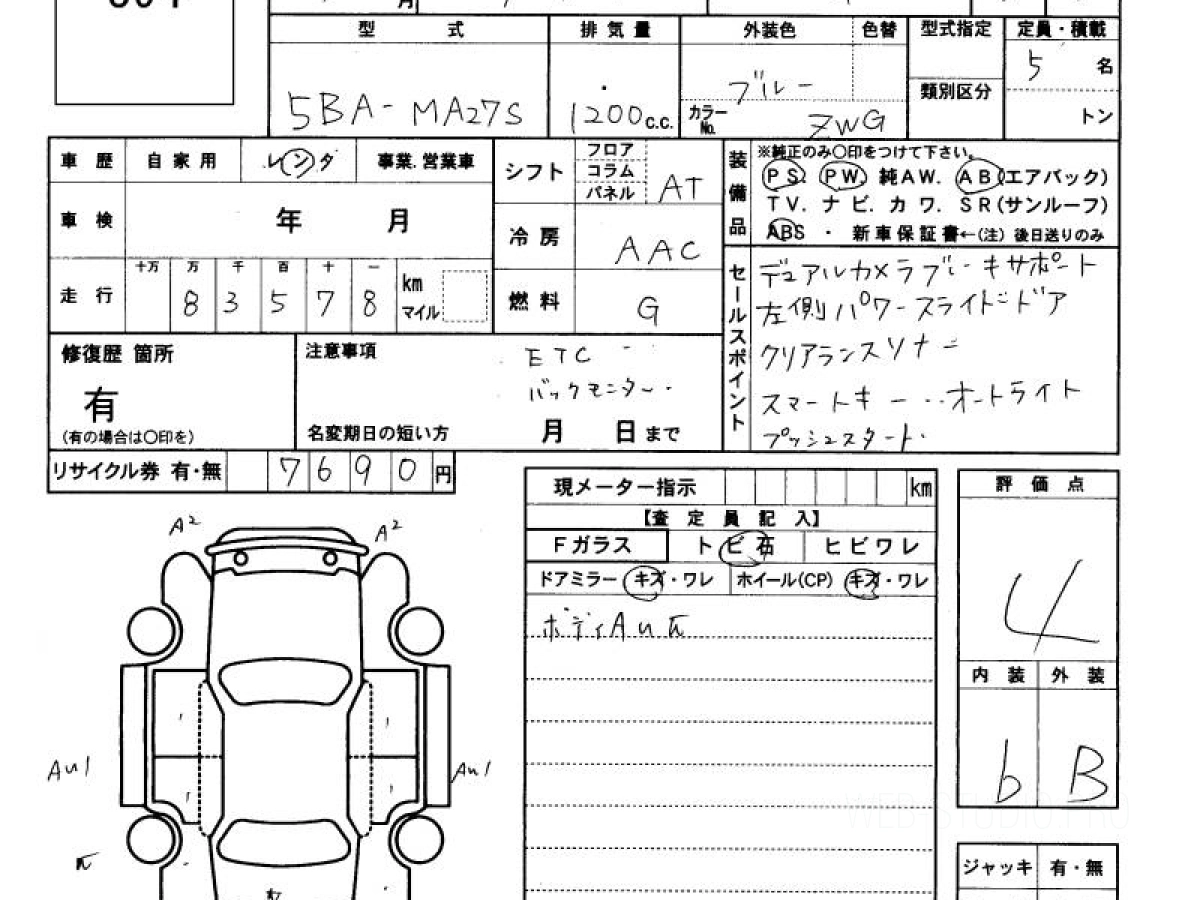 月
型 式
排 気 量
外装色 色替
型式指定
定員・積載
5BA-MA27S
1200 c.c.
ブルー
カラーNo. ZWG
類別区分
5 名
トン
車 歴 自 家 用 レンタ 事業.営業車
シフト
フロア
コラム
パネル
AT
装備品
※純正のみ〇印をつけて下さい。
PS. PW. 純AW. AB(エアバック)
TV. ナビ. カワ. SR(サンルーフ)
ABS ・ 新車保証書←(注) 後日送りのみ
車 検 年 月
冷 房 AAC
走 行
十万 万 千 百 十 一
8 3 5 7 8
km
マイル
燃 料 G
セールスポイント
デュアルカメラブレーキサポート
左側パワースライドドア
クリアランスソナー
スマートキー ‥オートライト
プッシュスタート.
修復歴 箇所
有
(有の場合は〇印を)
注意事項
ETC
バックモニター.
名変期日の短い方 月 日まで
リサイクル券 有・無 7690 円
現メーター指示 km
【査 定 員 記 入】
Fガラス トビ石 ヒビワレ
ドアミラー キズ・ワレ ホイール(CP) キズ・ワレ
ボディAU瓦
評 価 点
4
内 装 外 装
b B
ジャッキ 有・無
A2 A2
AU1 AU1
WEB STUDIO.PRO